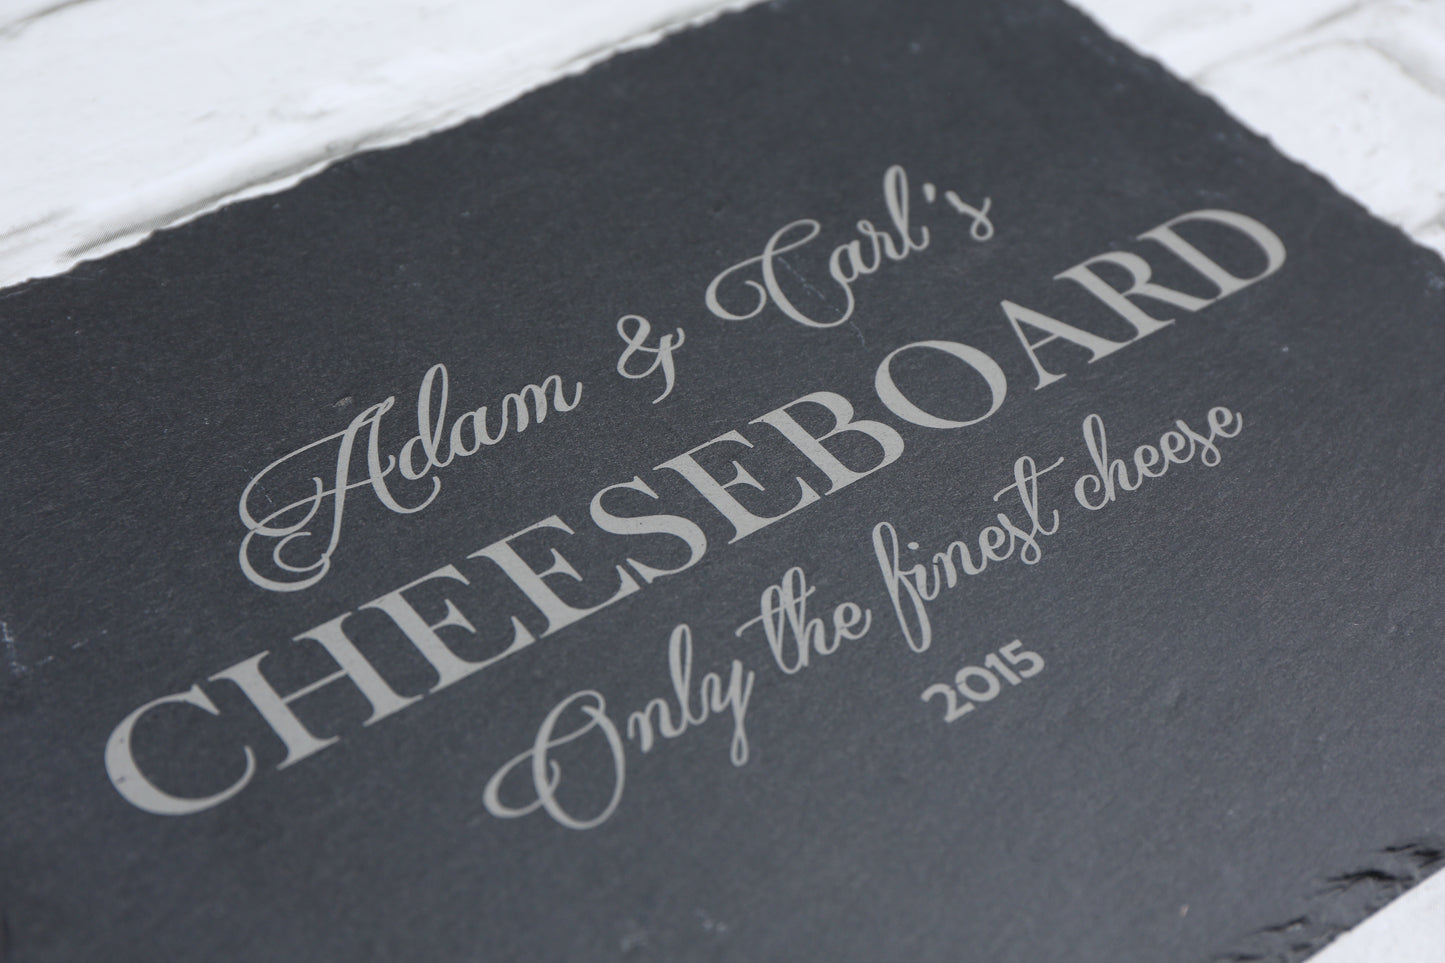 Adam & Carl's
CHEESEBOARD
Only the finest cheese
2015